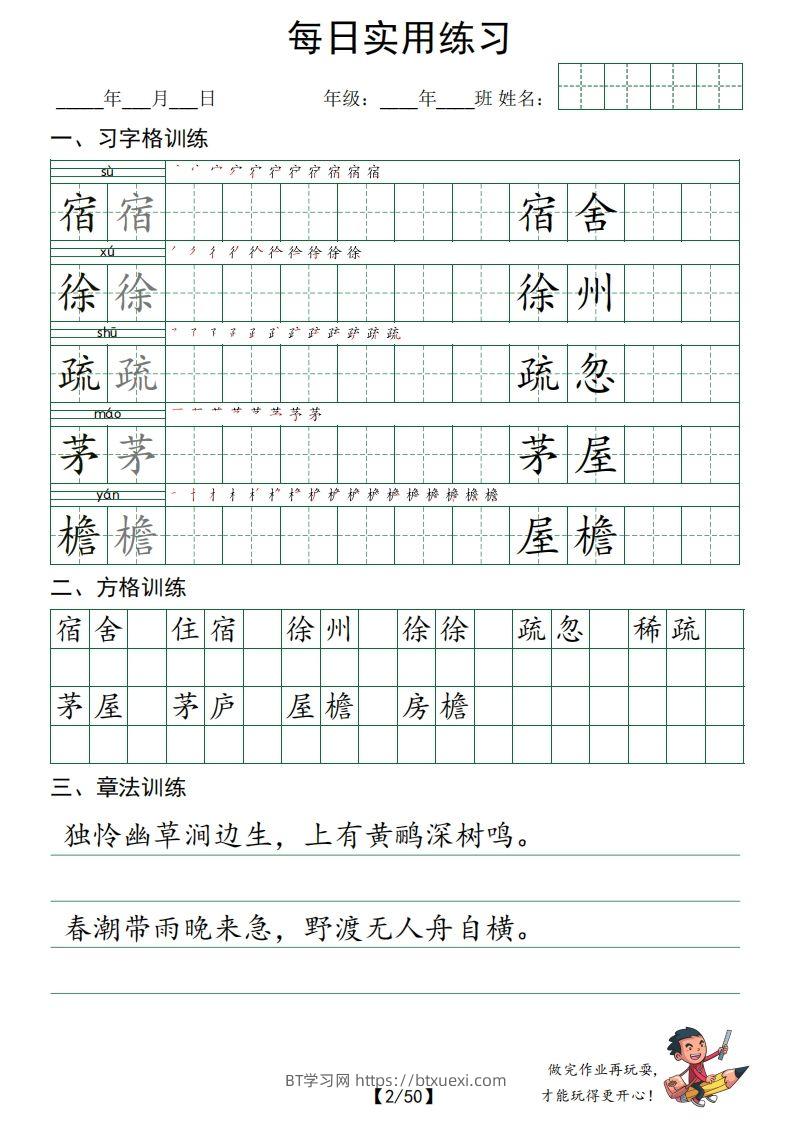 每日实用练习
_____年___月___日 年级：____年____班 姓名：
一、习字格训练
sù
宿 宿 宿 舍
xú
徐 徐 徐 州
shū
疏 疏 疏 忽
máo
茅 茅 茅 屋
yán
檐 檐 屋 檐
二、方格训练
宿 舍 住 宿 徐 州 徐 徐 疏 忽 稀 疏
茅 屋 茅 庐 屋 檐 房 檐
三、章法训练
独怜幽草涧边生，上有黄鹂深树鸣。
春潮带雨晚来急，野渡无人舟自横。
做完作业再玩耍，
才能玩得更开心！
BT学习网 https://btxuexi.com
【2/50】